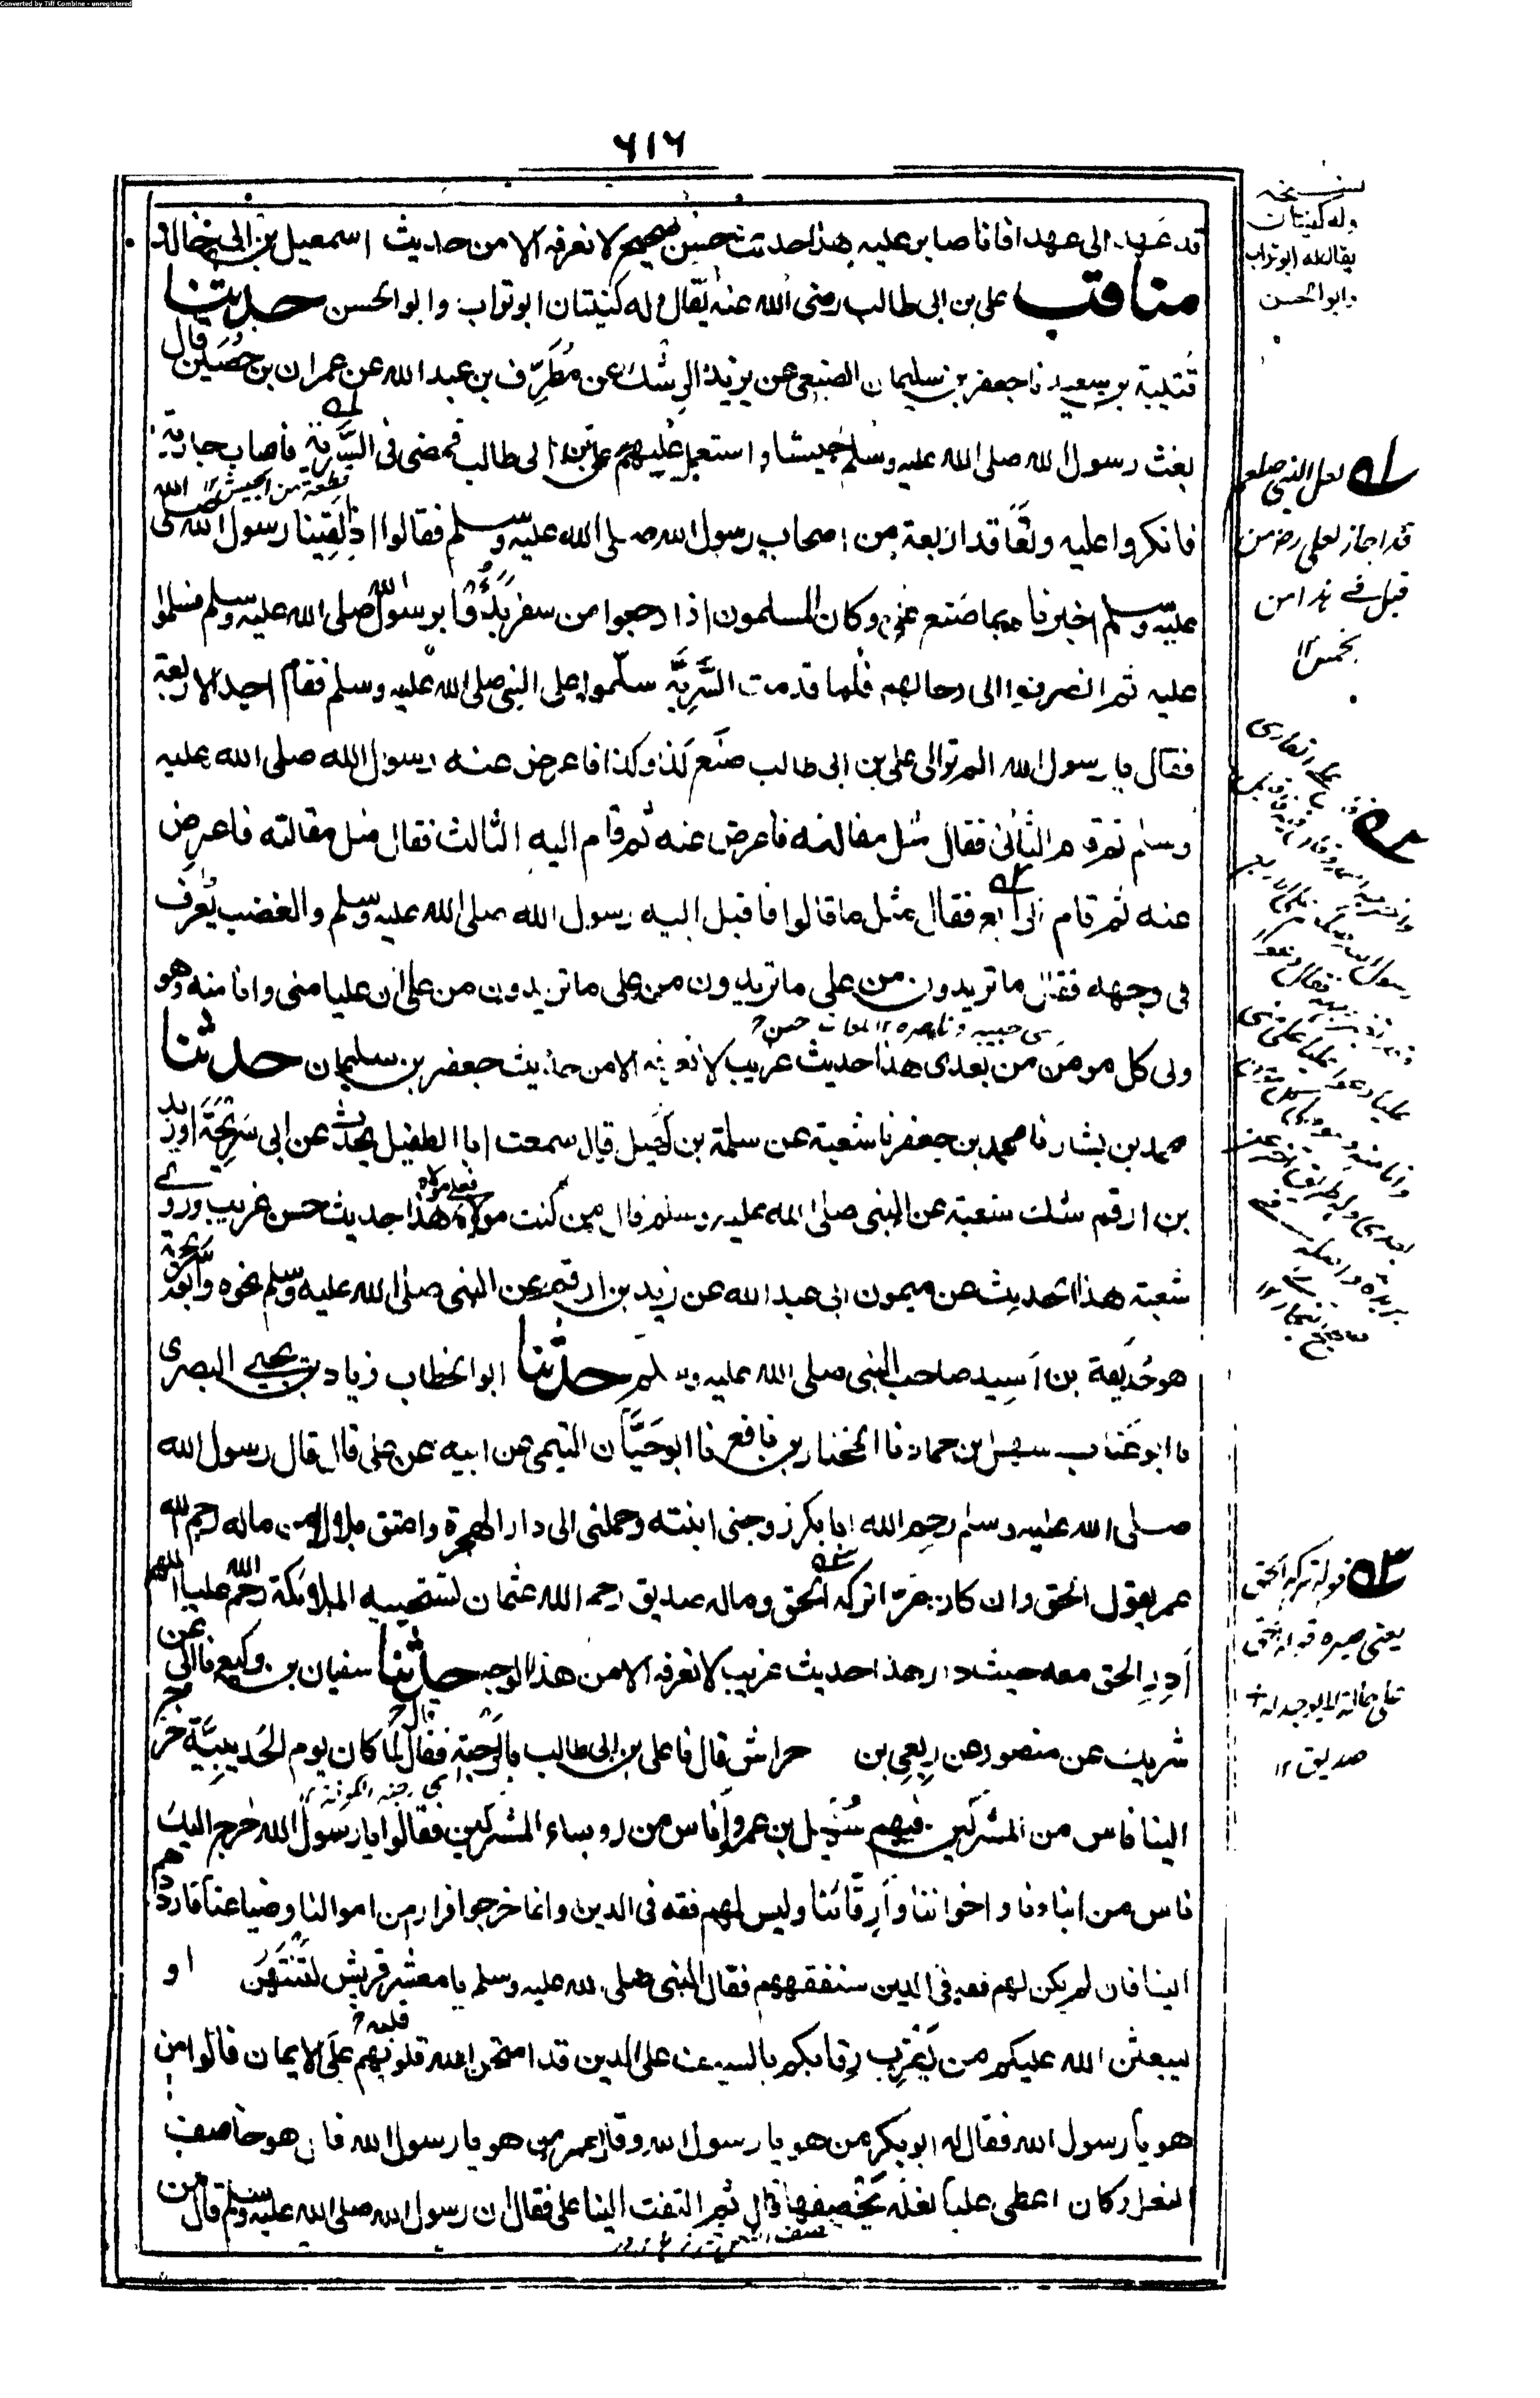 Converted by Tiff Combine - unregistered
٦١٦
قد عهد الى عهدا فانا صابر عليه هذا حديث حسن صحيح لا نعرفه الا من حديث اسمعيل بن ابى خالد
مناقب على بن ابى طالب رضى الله عنه يقال وله كنيتان ابو تراب وابو الحسن حدثنا
قتيبة بن سعيد نا جعفر بن سليمان الضبعى عن يزيد الرشك عن مطرف بن عبد الله عن عمران بن حصين قال
بعث رسول الله صلى الله عليه وسلم جيشا واستعمل عليهم على بن ابى طالب فمضى فى السرية فاصاب جارية
قطعة من الجيش ١٢
فانكروا عليه وتعاقد اربعة من اصحاب رسول الله صلى الله عليه وسلم فقالوا اذا لقينا رسول الله صلى الله
عليه وسلم اخبرناه بما صنع على وكان المسلمون اذا رجعوا من سفر بدؤا برسول الله صلى الله عليه وسلم فسلموا
عليه ثم انصرفوا الى رحالهم فلما قدمت السرية سلموا على النبى صلى الله عليه وسلم فقام احد الاربعة
فقال يا رسول الله الم تر الى على بن ابى طالب صنع كذا وكذا فاعرض عنه رسول الله صلى الله عليه
وسلم ثم قام الثانى فقال مثل مقالته فاعرض عنه ثم قام اليه الثالث فقال مثل مقالته فاعرض
عنه ثم قام الرابع فقال مثل ما قالوا فاقبل اليه رسول الله صلى الله عليه وسلم والغضب يعرف
فى وجهه فقال ما تريدون من على ما تريدون من على ما تريدون من على ان عليا منى وانا منه وهو
ولى كل مومن من بعدى هذا حديث غريب لا نعرفه الا من حديث جعفر بن سليمان حدثنا
محمد بن بشار نا محمد بن جعفر نا شعبة عن سلمة بن كهيل قال سمعت ابا الطفيل يحدث عن ابى سريحة او زيد
بن ارقم شك شعبة عن النبى صلى الله عليه وسلم قال من كنت مولاه فعلى مولاه هذا حديث حسن غريب وروى
شعبة هذا الحديث عن ميمون ابى عبد الله عن زيد بن ارقم عن النبى صلى الله عليه وسلم نحوه وابو سريحة
هو حذيفة بن اسيد صاحب النبى صلى الله عليه وسلم حدثنا ابو الخطاب زياد بن يحيى البصرى
نا ابو عتاب سهل بن حماد نا المختار بن نافع نا ابو حيان التيمى عن ابيه عن على قال قال رسول الله
صلى الله عليه وسلم رحم الله ابا بكر زوجنى ابنته وحملنى الى دار الهجرة واعتق بلالا من ماله رحم الله
عمر يقول الحق وان كان مرا تركه الحق وماله صديق رحم الله عثمان تستحييه الملائكة رحم الله عليا اللهم
ادر الحق معه حيث دار هذا حديث غريب لا نعرفه الا من هذا الوجه حدثنا سفيان بن وكيع نا ابى عن
شريك عن منصور عن ربعى بن حراش قال نا على بن ابى طالب بالرحبة فقال لما كان يوم الحديبية خرج
الينا ناس من المشركين فيهم سهيل بن عمرو واناس من روساء المشركين فقالوا يا رسول الله خرج اليك
ناس من ابناءنا واخواننا وارقائنا وليس لهم فقه فى الدين وانما خرجوا فرارا من اموالنا وضياعنا فارددهم
الينا فان لم يكن لهم فقه فى الدين سنفقههم فقال النبى صلى الله عليه وسلم يا معشر قريش لتنتهن او
ليبعثن الله عليكم من يضرب رقابكم بالسيف على الدين قد امتحن الله قلوبهم على الايمان قالوا من
هو يا رسول الله فقال له ابو بكر من هو يا رسول الله وقال عمر من هو يا رسول الله قال هو خاصف
النعل وكان اعطى عليا نعله يخصفها قال ثم التفت الينا على فقال ان رسول الله صلى الله عليه وسلم قال من
نسخه
وله كنيتان
يقال له ابو تراب
وابو الحسن
لعل النبى صلعم
قد اجاز لعلى رض من
قبل فى هذا من
خمس ١٢
قوله تركه الحق
يعنى صيره
صديق ١٢